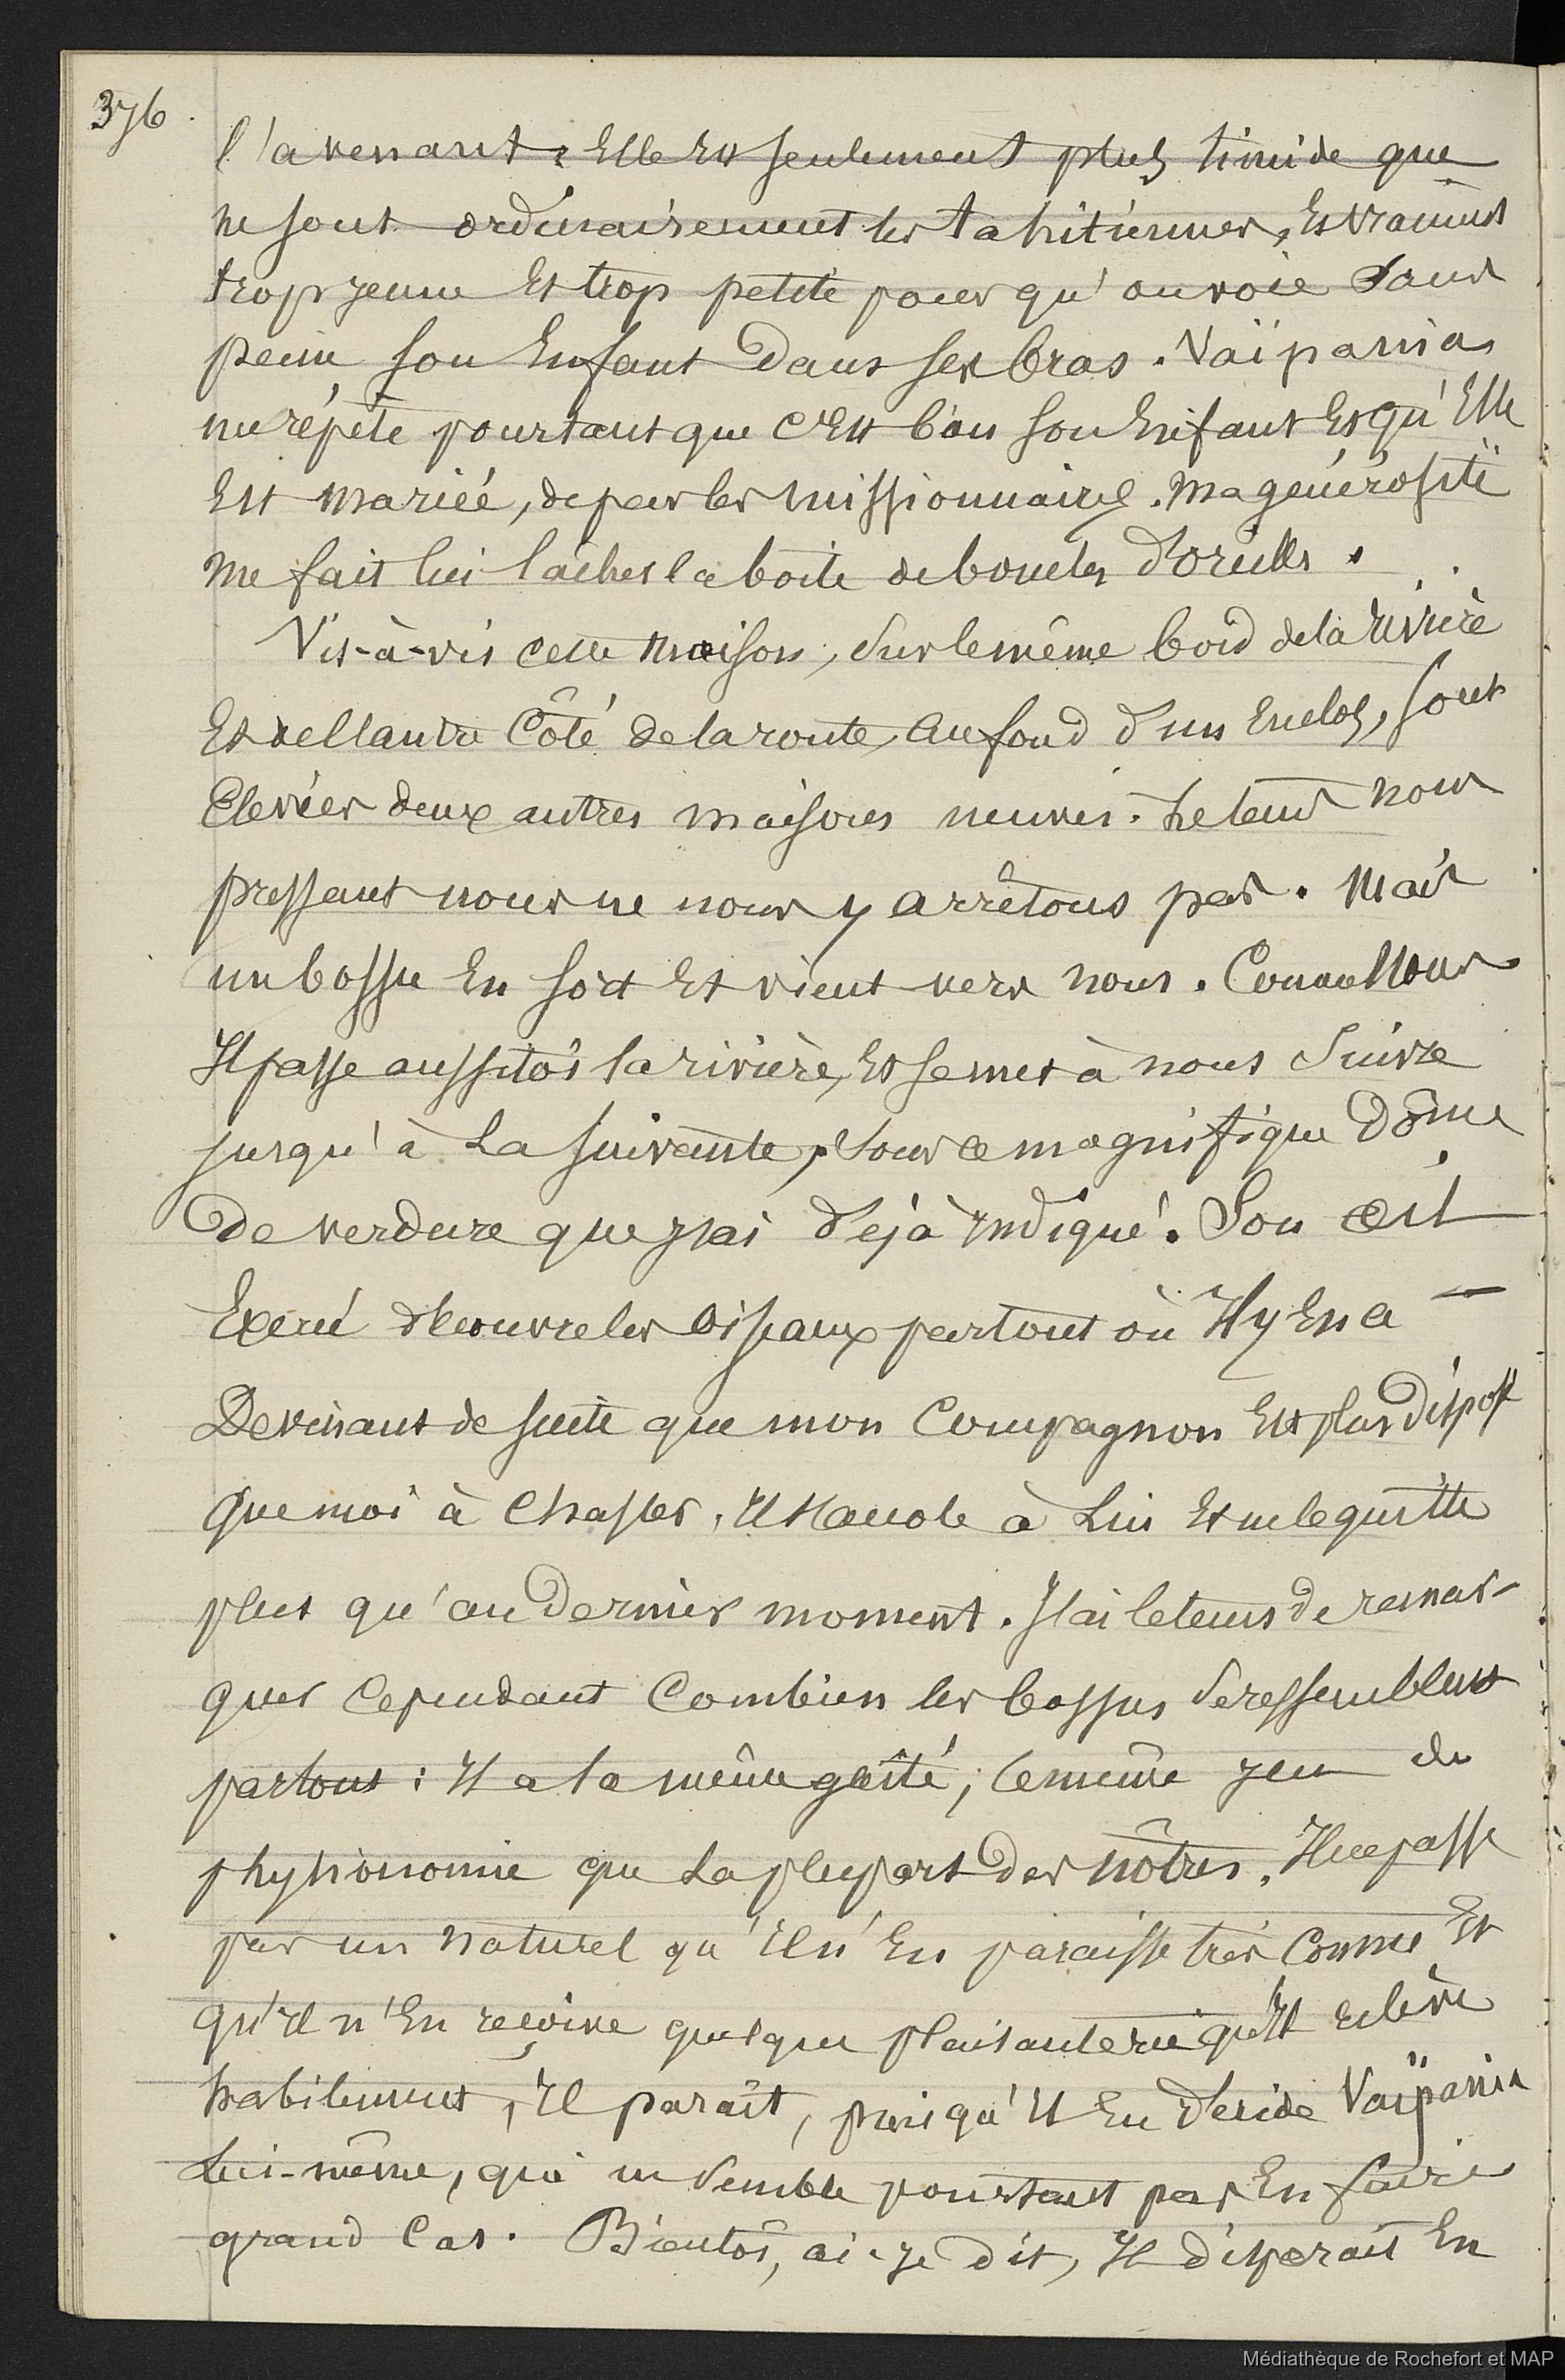 376.
l'avenant. Elle est seulement plus timide que
ne sont ordinairement les tahitiennes, et vraiment
trop jeune et trop petite pour qu'on voie sans
peine son enfant dans ses bras. Vaïpania
me répète pourtant que c'est bien son enfant et qu'elle
est mariée, de par les missionnaires. Ma générosité
me fait lui lâcher la boite de boucles d'oreilles.
Vis-à-vis cette maison, sur le même bord de la rivière
et de l'autre côté de la route, au fond d'un enclos, sont
élevées deux autres maisons neuves. Le tems nous
pressant nous ne nous y arrêtons pas. Mais
un bossu en sort et vient vers nous. Comme nous
Il passe aussitôt la rivière, et se met à nous suivre
jusqu'à la suivante, sous ce magnifique dôme
de verdure que j'ai déjà indiqué. Son œil
exercé découvre les oiseaux partout où Il y en a —
Devinant de suite que mon compagnon est plus dispos
que moi à chasser, Il s'accole à lui et ne le quitte
plus qu'au dernier moment. J'ai le tems de remar-
quer cependant combien les bossus se ressemblent
partout : Il a la même gaîté, le même jeu de
physionomie que la plupart des nôtres. Il ne passe
pas un naturel qu'il n'en paraisse très connu et
qu'il n'en reçoive quelque plaisanterie qu'Il relève
habilement, Il paraît, puisqu'Il en déride Vaïpania
lui-même, qui ne semble pourtant pas en faire
grand cas. Bientôt, ai-je dit, Il disparaît en
Médiathèque de Rochefort et MAP